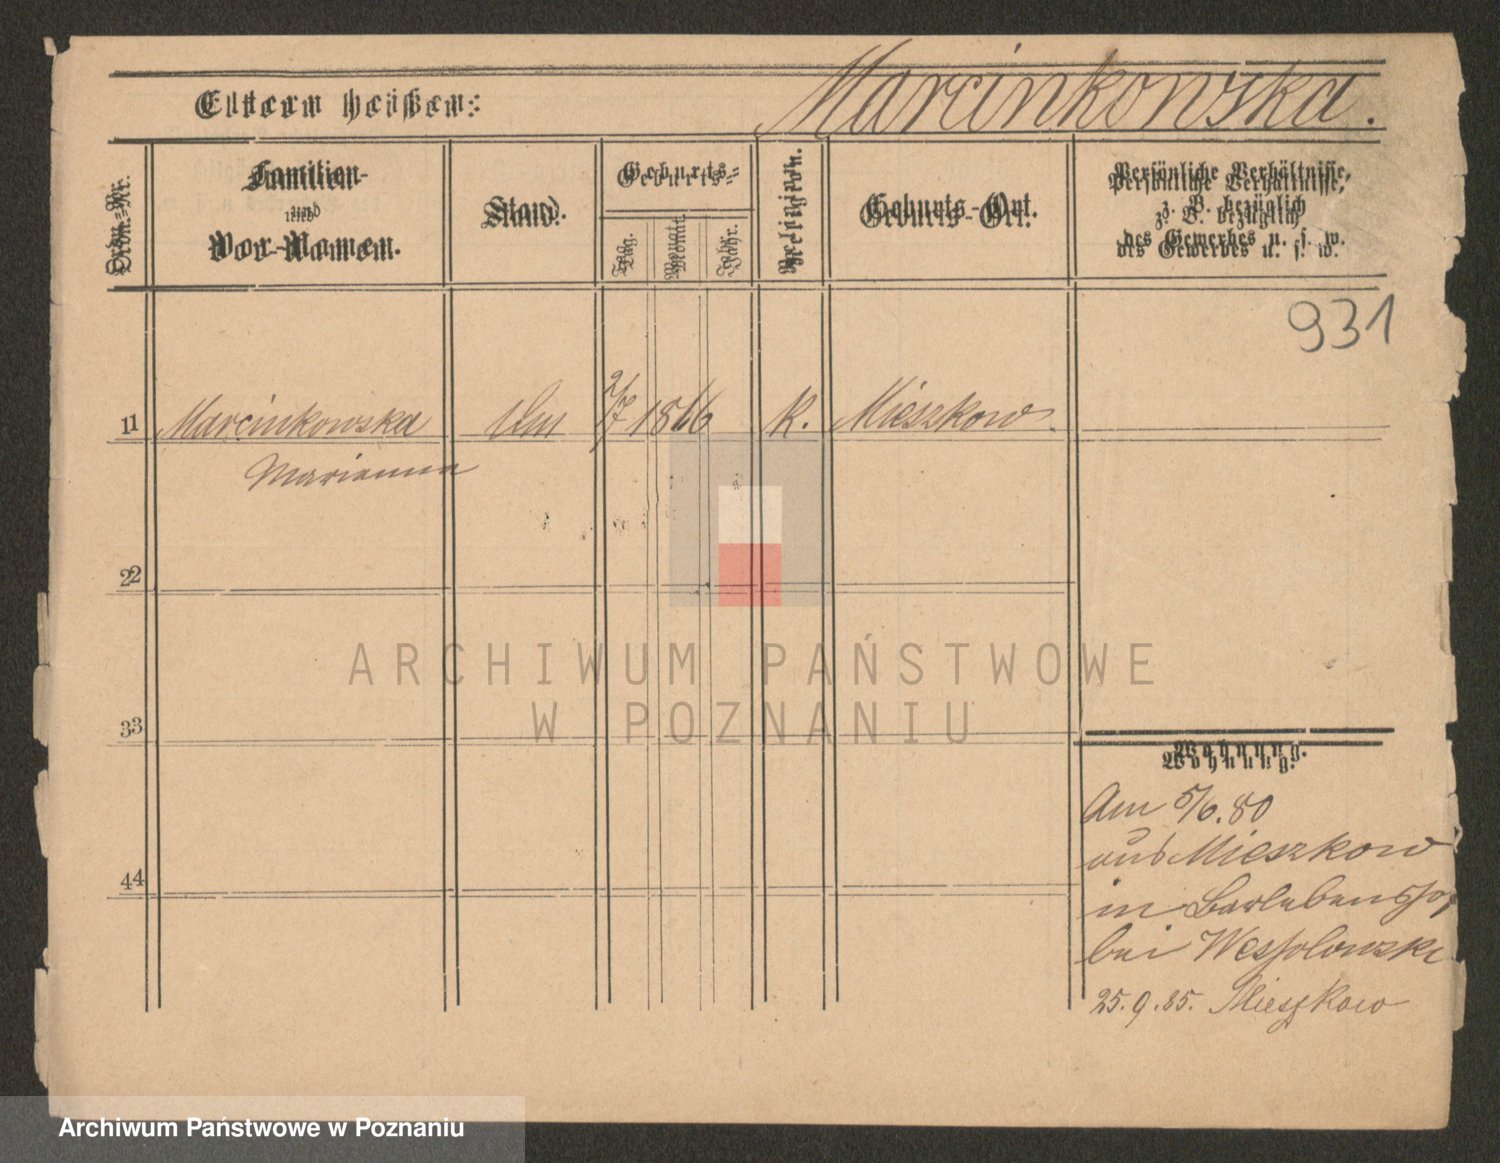 Marcinkowska.
Eltern heißen:
Ordn.-Nr.
Familien-
und
Vor-Namen.
Stand.
Geburts-
Tag.
Monat.
Jahr.
Religion.
Geburts-Ort.
Persönliche Verhältnisse,
z. B. bezüglich
des Gewerbes u. s. w.
931
1 Marcinkowska 2/7 1866 k. Mieszkow.
Marianna
2
3
4
Wohnung.
Am 5/6.80
aus Mieszkow
in
bei Wessolowski
25.9.85. Mieszkow
ARCHIWUM PAŃSTWOWE
W POZNANIU
Archiwum Państwowe w Poznaniu